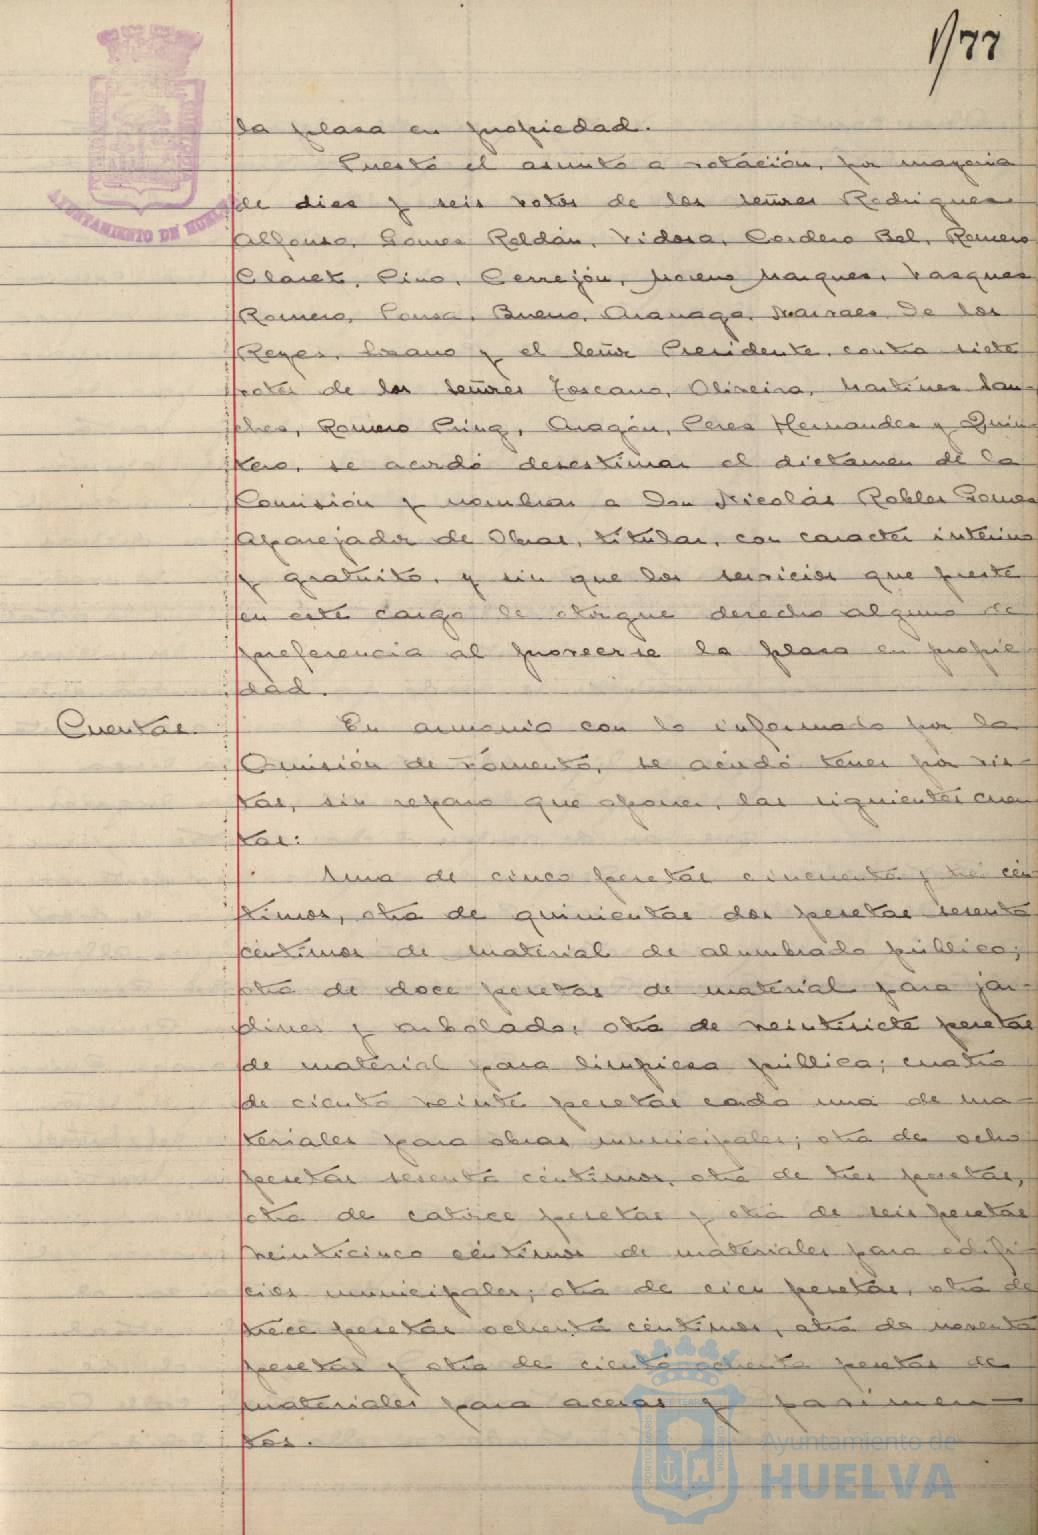 177
AYUNTAMIENTO DE HUELVA
la plasa en propiedad.
Puesto el asunto a votación, por mayoria
de dies y seis votos de los señores Rodrigues
Alfonso, Gomes Roldán, Vidosa, Cordero Bel, Romero
Claret, Pino, Cerrejón, Moreno Marques, Vasques
Romero, Ponsa, Bueno, Aranaga, Narvaes, De los
Reyes, Lozano y el señor Presidente, contra siete
votos de los señores Toscano, Oliveira, Martines San-
ches, Romero Aragón, Peres Hernandes y Quin-
tero, se acordó desestimar el dictamen de la
Comisión y nombrar a Don Nicolás Robles Gomes
Aparejador de Obras, titular, con caracter interino
y gratuito, y sin que los servicios que preste
en este cargo le otorgue derecho alguno de
preferencia al proveerse la plasa en propie-
dad.
Cuentas.
En armonia con lo informado por la
Comisión de Fomento, se acordó tener por vis-
tas, sin reparo que oponer, las siguientes cuen
tas:
Una de cinco pesetas cincuenta y tres cén
timos, otra de quinientas dos pesetas sesenta
céntimos de material de alumbrado público;
otra de doce pesetas de material para jar-
dines y arbolado; otra de veintisiete pesetas
de material para limpiesa pública; cuatro
de ciento veinte pesetas cada una de ma-
teriales para obras municipales; otra de ocho
pesetas sesenta céntimos, otra de tres pesetas,
otra de catorce pesetas y otra de seis pesetas
veinticinco céntimos de materiales para edifi-
cios municipales; otra de cien pesetas, otra de
trece pesetas ochenta céntimos, otra de noventa
pesetas y otra de ciento ochenta pesetas de
materiales para aceras y pavimen-
tos.
PORTUS MARIS ET TERRAE CUSTODIA
Ayuntamiento de
HUELVA